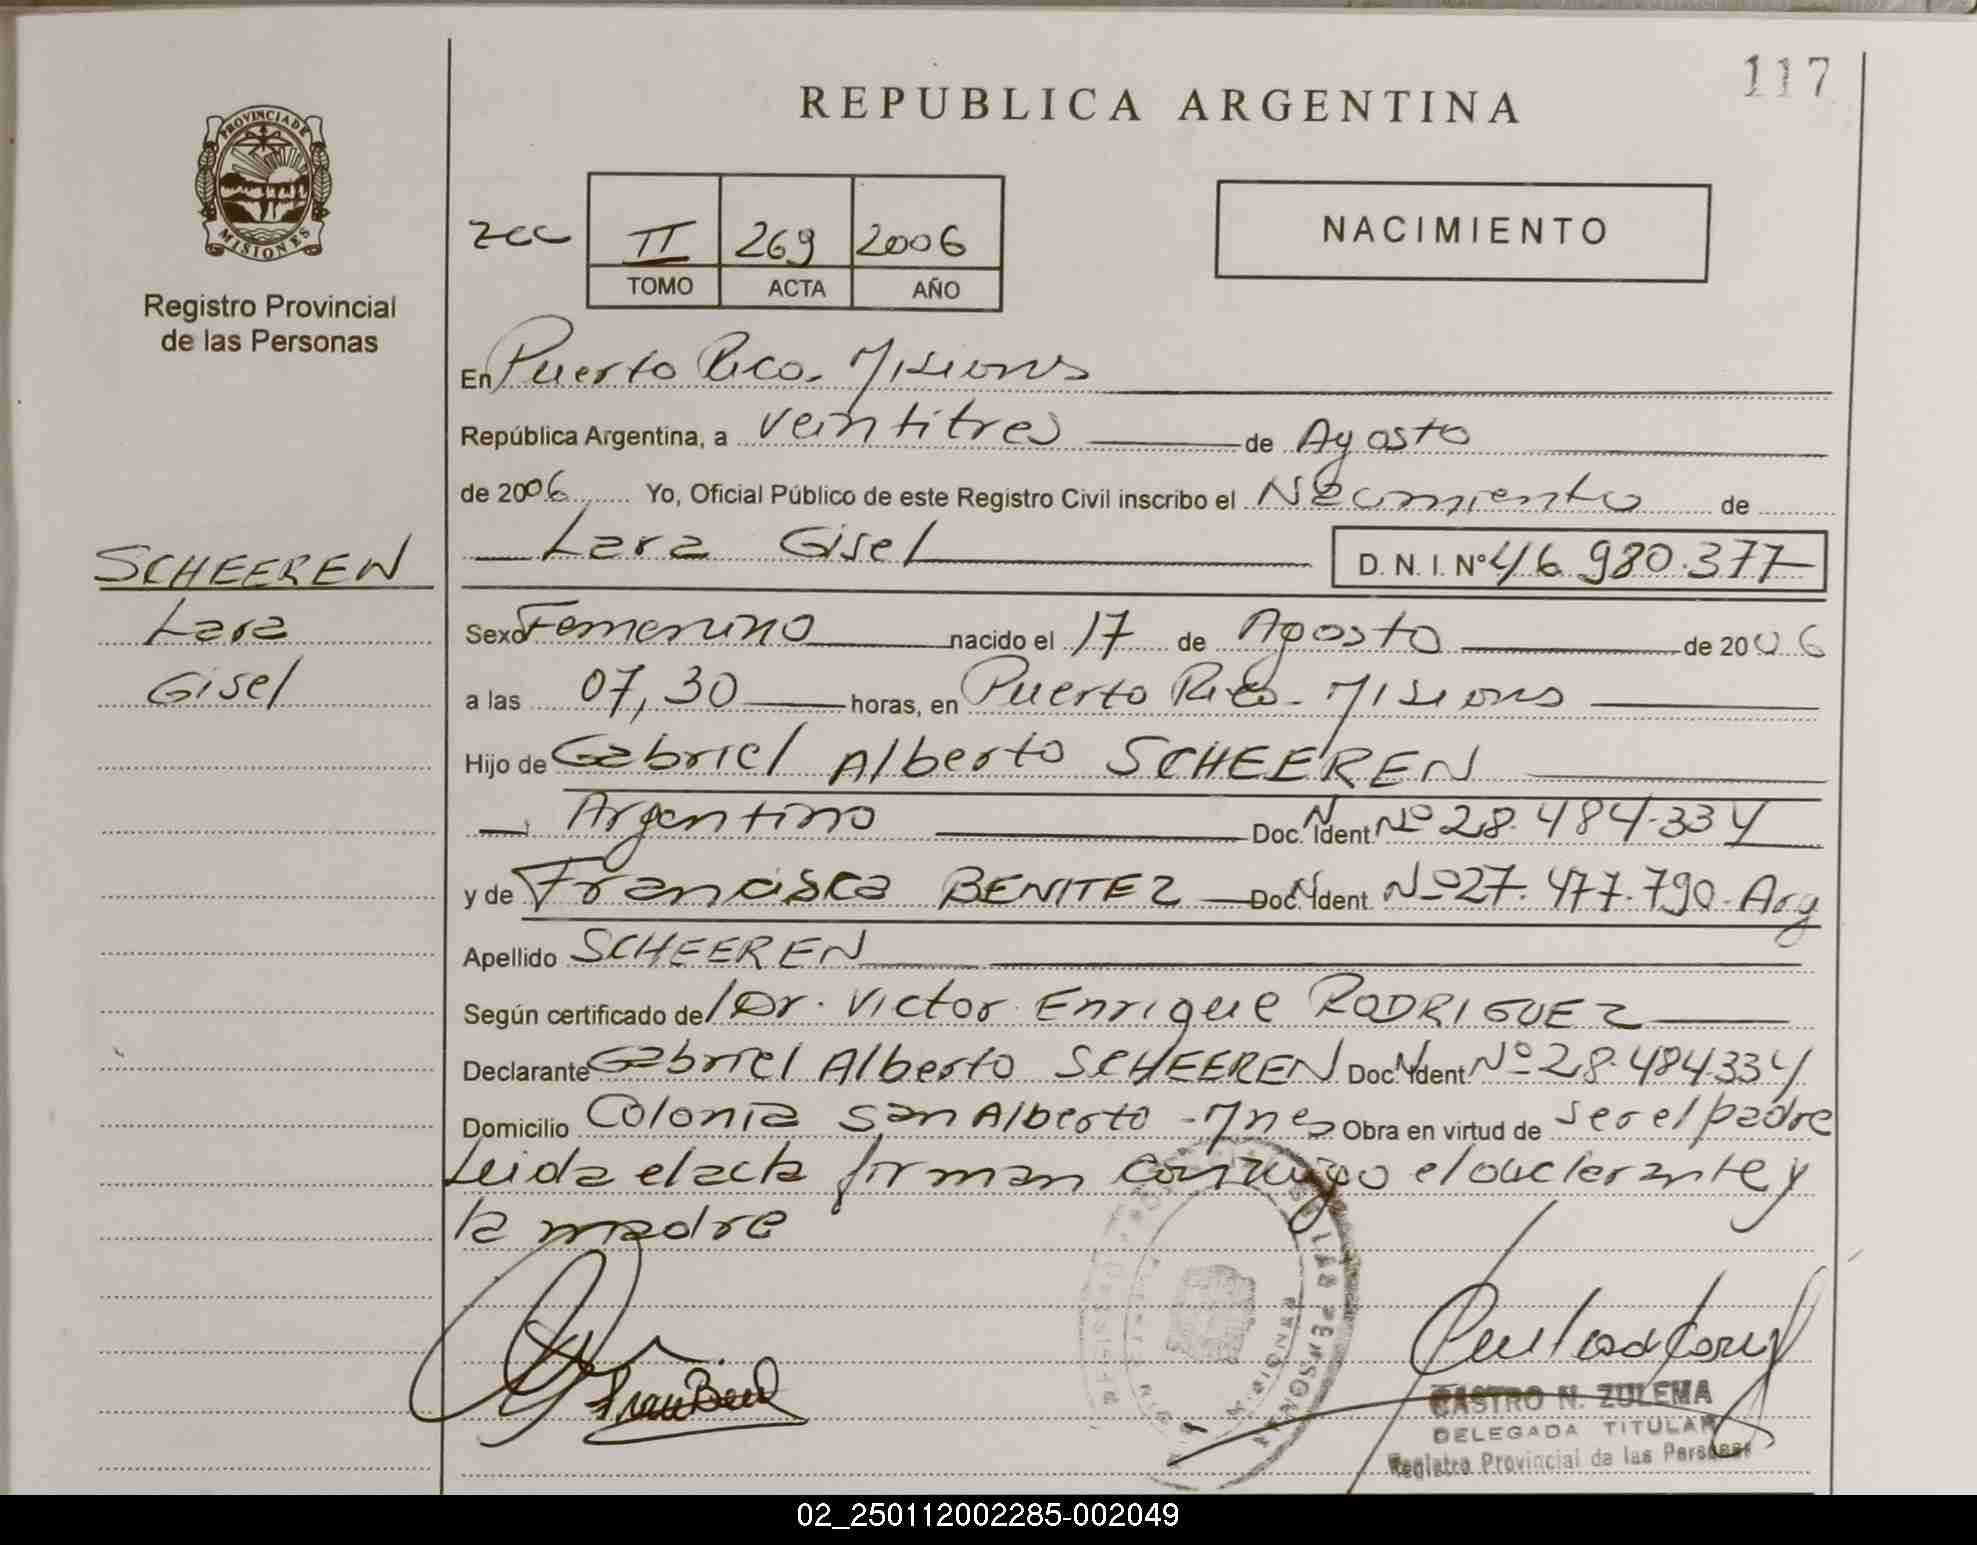 117
REPUBLICA ARGENTINA
PROVINCIA DE
MISIONES
Registro Provincial
de las Personas
zcc II 269 2006
TOMO ACTA AÑO
NACIMIENTO
En Puerto Rico. Misiones
República Argentina, a veintitres de Agosto
de 2006 Yo, Oficial Público de este Registro Civil inscribo el Nacimiento de
Lara Gisel D. N. I. Nº 46.980.377
SCHEEREN
Lara
Gisel
Sexo Femenino nacido el 17 de Agosto de 2006
a las 07,30 horas, en Puerto Rico - Misiones
Hijo de Gabriel Alberto SCHEEREN
Argentino Doc. N. Ident. Nº 28.484.334
y de Francisca BENITEZ Doc. N. Ident. Nº 27.477.790. Arg
Apellido SCHEEREN
Según certificado del Dr. Victor Enrique RODRIGUEZ
Declarante Gabriel Alberto SCHEEREN Doc. N. Ident. Nº 28.484334
Domicilio Colonia San Alberto - Mnes Obra en virtud de ser el padre
Leida el acta firman conmigo el declarante y
la madre
LAS PERSONAS
CASTRO N. ZULEMA
DELEGADA TITULAR
Registro Provincial de las Personas
02_250112002285-002049